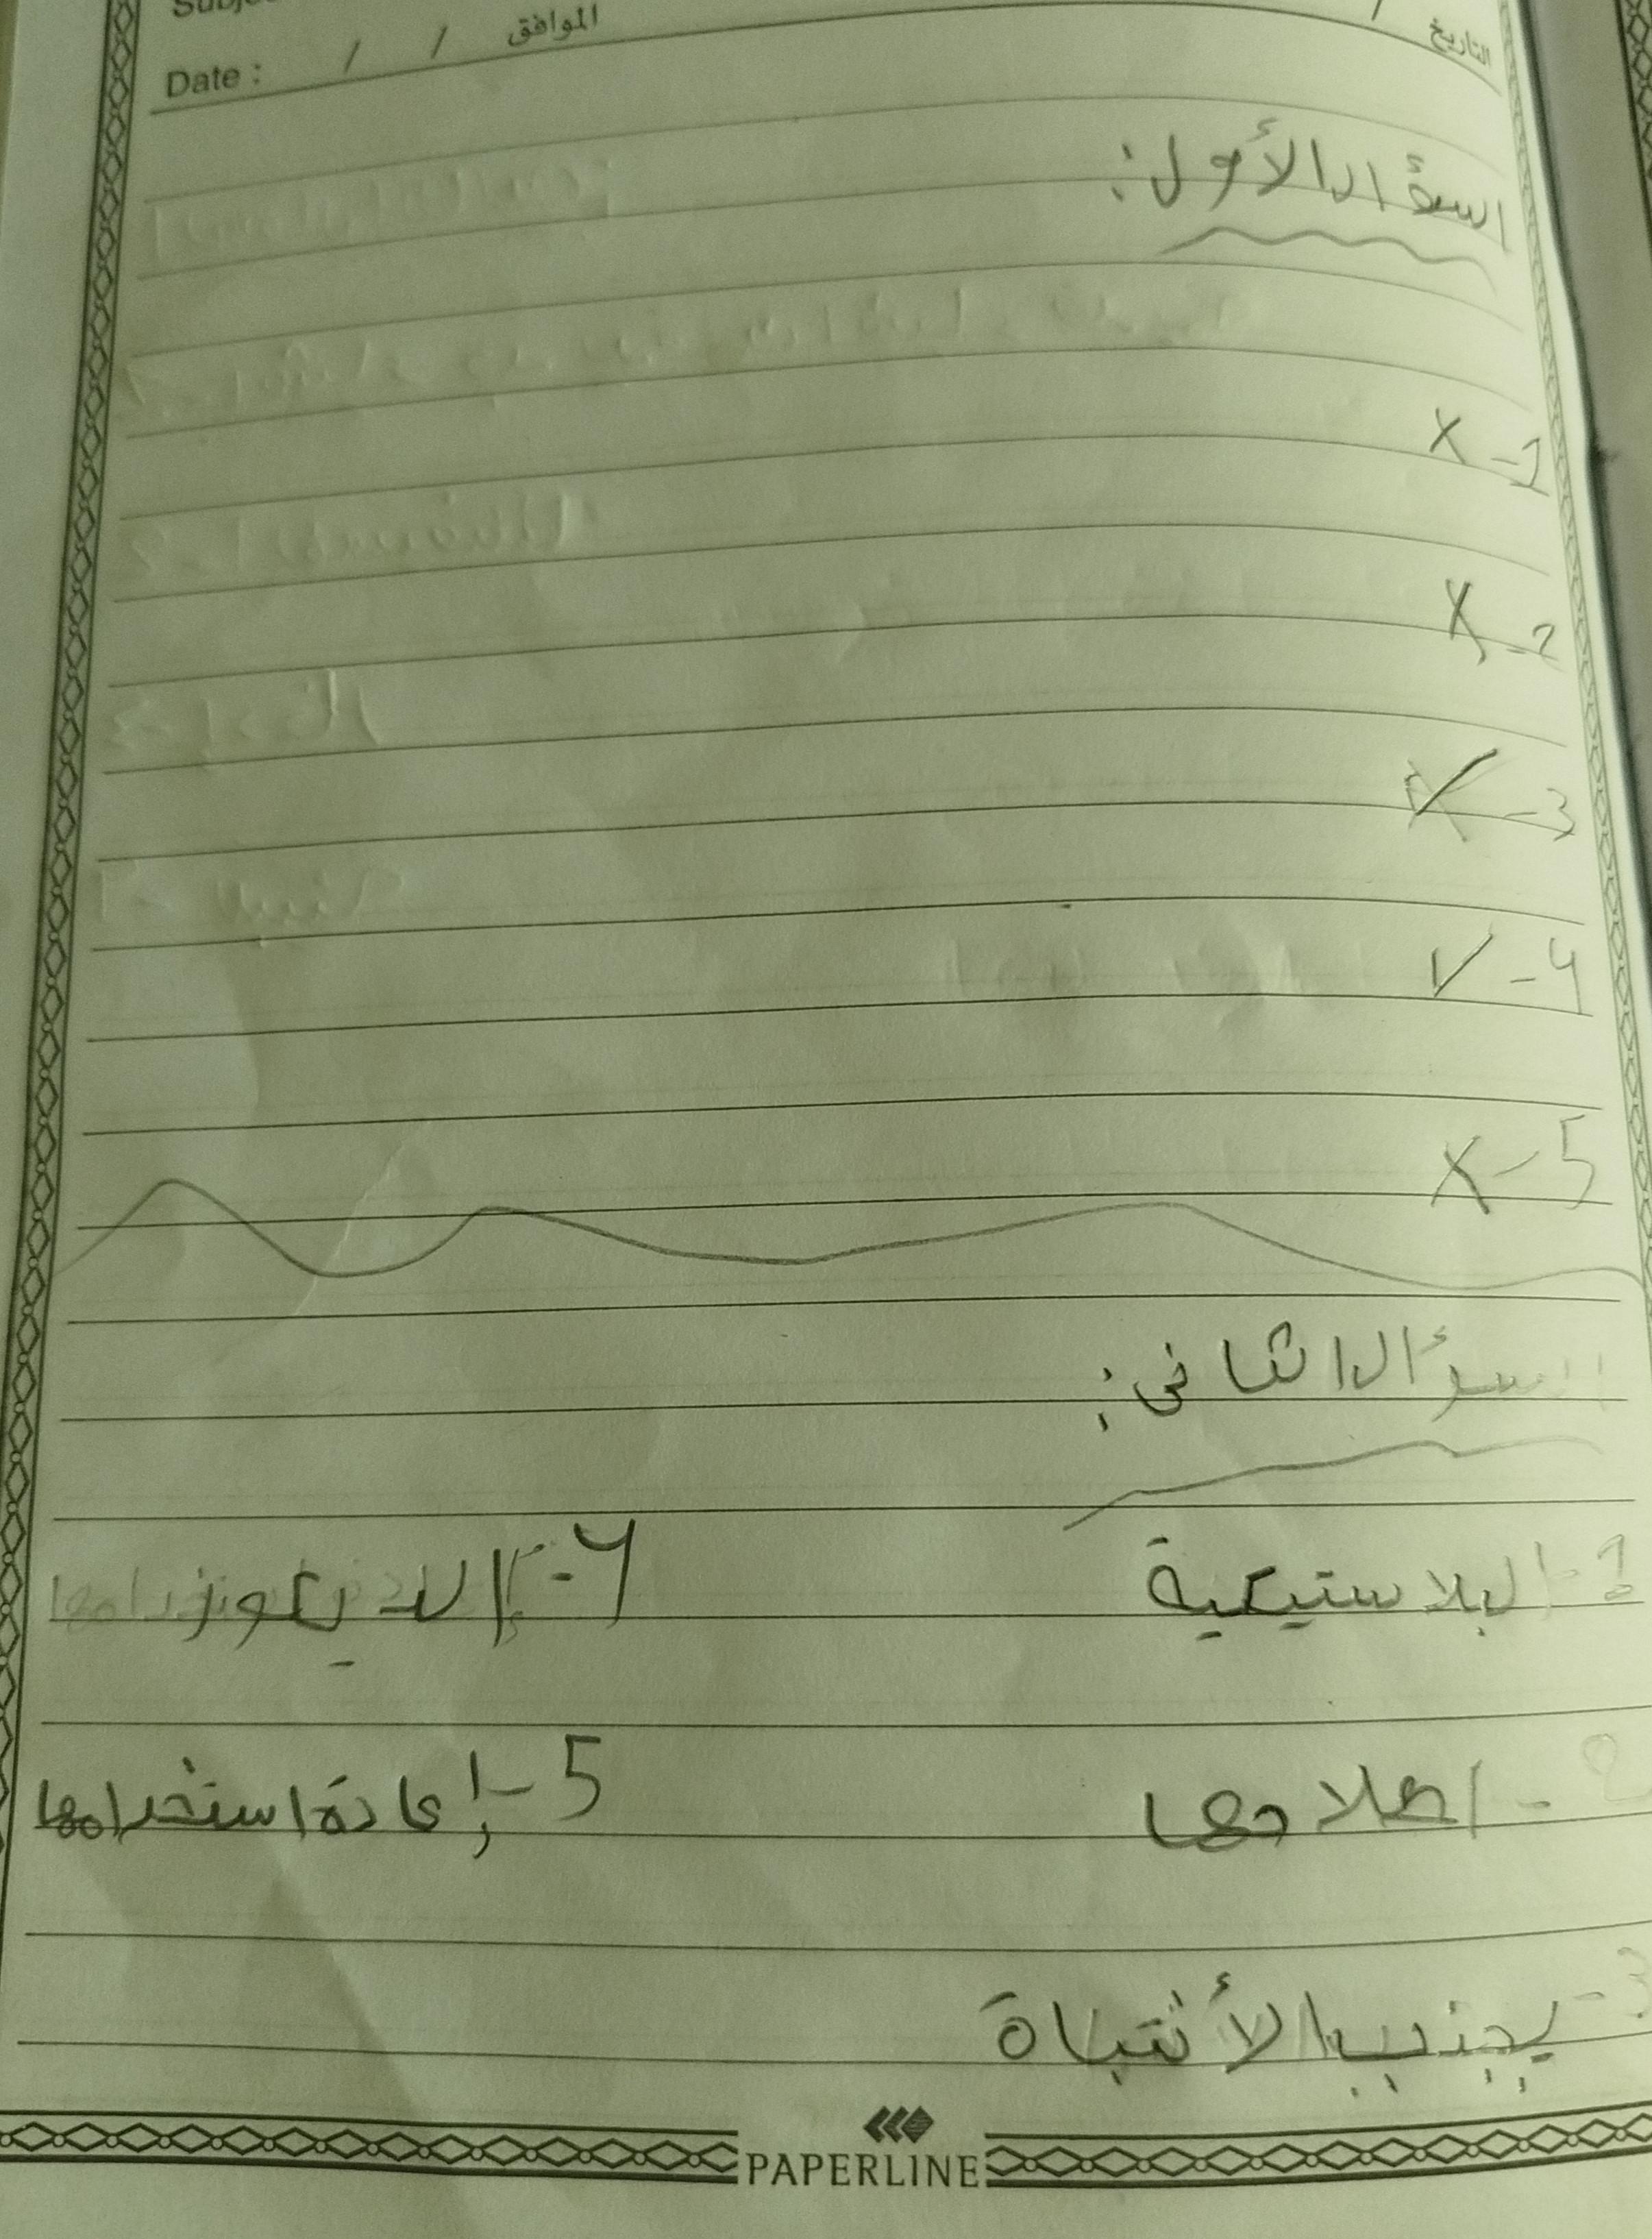 Date : / / الموافق / التاريخ
السؤال الأول:
1- X
2- X
3- ✓
4- ✓
5- X
السؤال الثاني:
1- البلاستيكية
4- الديكور
2- اصلاحها
5- إعادة استخدامها
3- يجذب الأنتباة
PAPERLINE